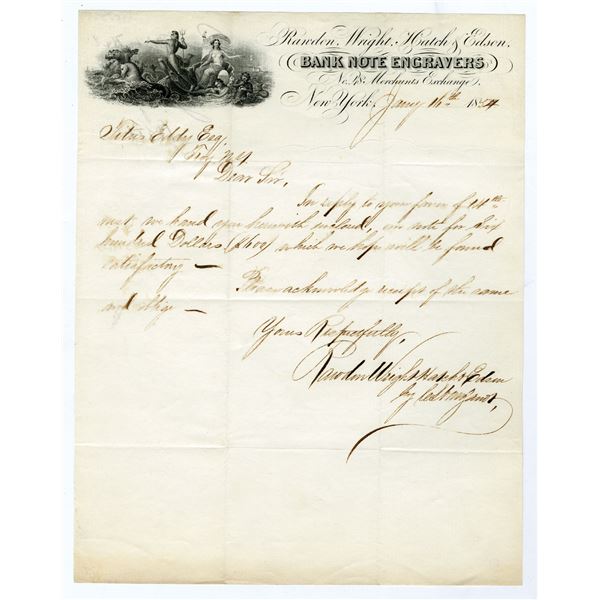 Rawdon, Wright, Hatch & Edson,
BANK NOTE ENGRAVERS
No. 48 Merchants Exchange,
New York, Jany 16th 1854
Titus Eddy Esq.
Troy N.Y.
Dear Sir,
In reply to your favor of 14th
inst, we hand you herewith inclosed, our note for Six
hundred Dollars ($600) which we hope will be found
satisfactory —
Please acknowledge receipt of the same
and oblige —
Yours Respectfully,
Rawdon Wright Hatch & Edson
by